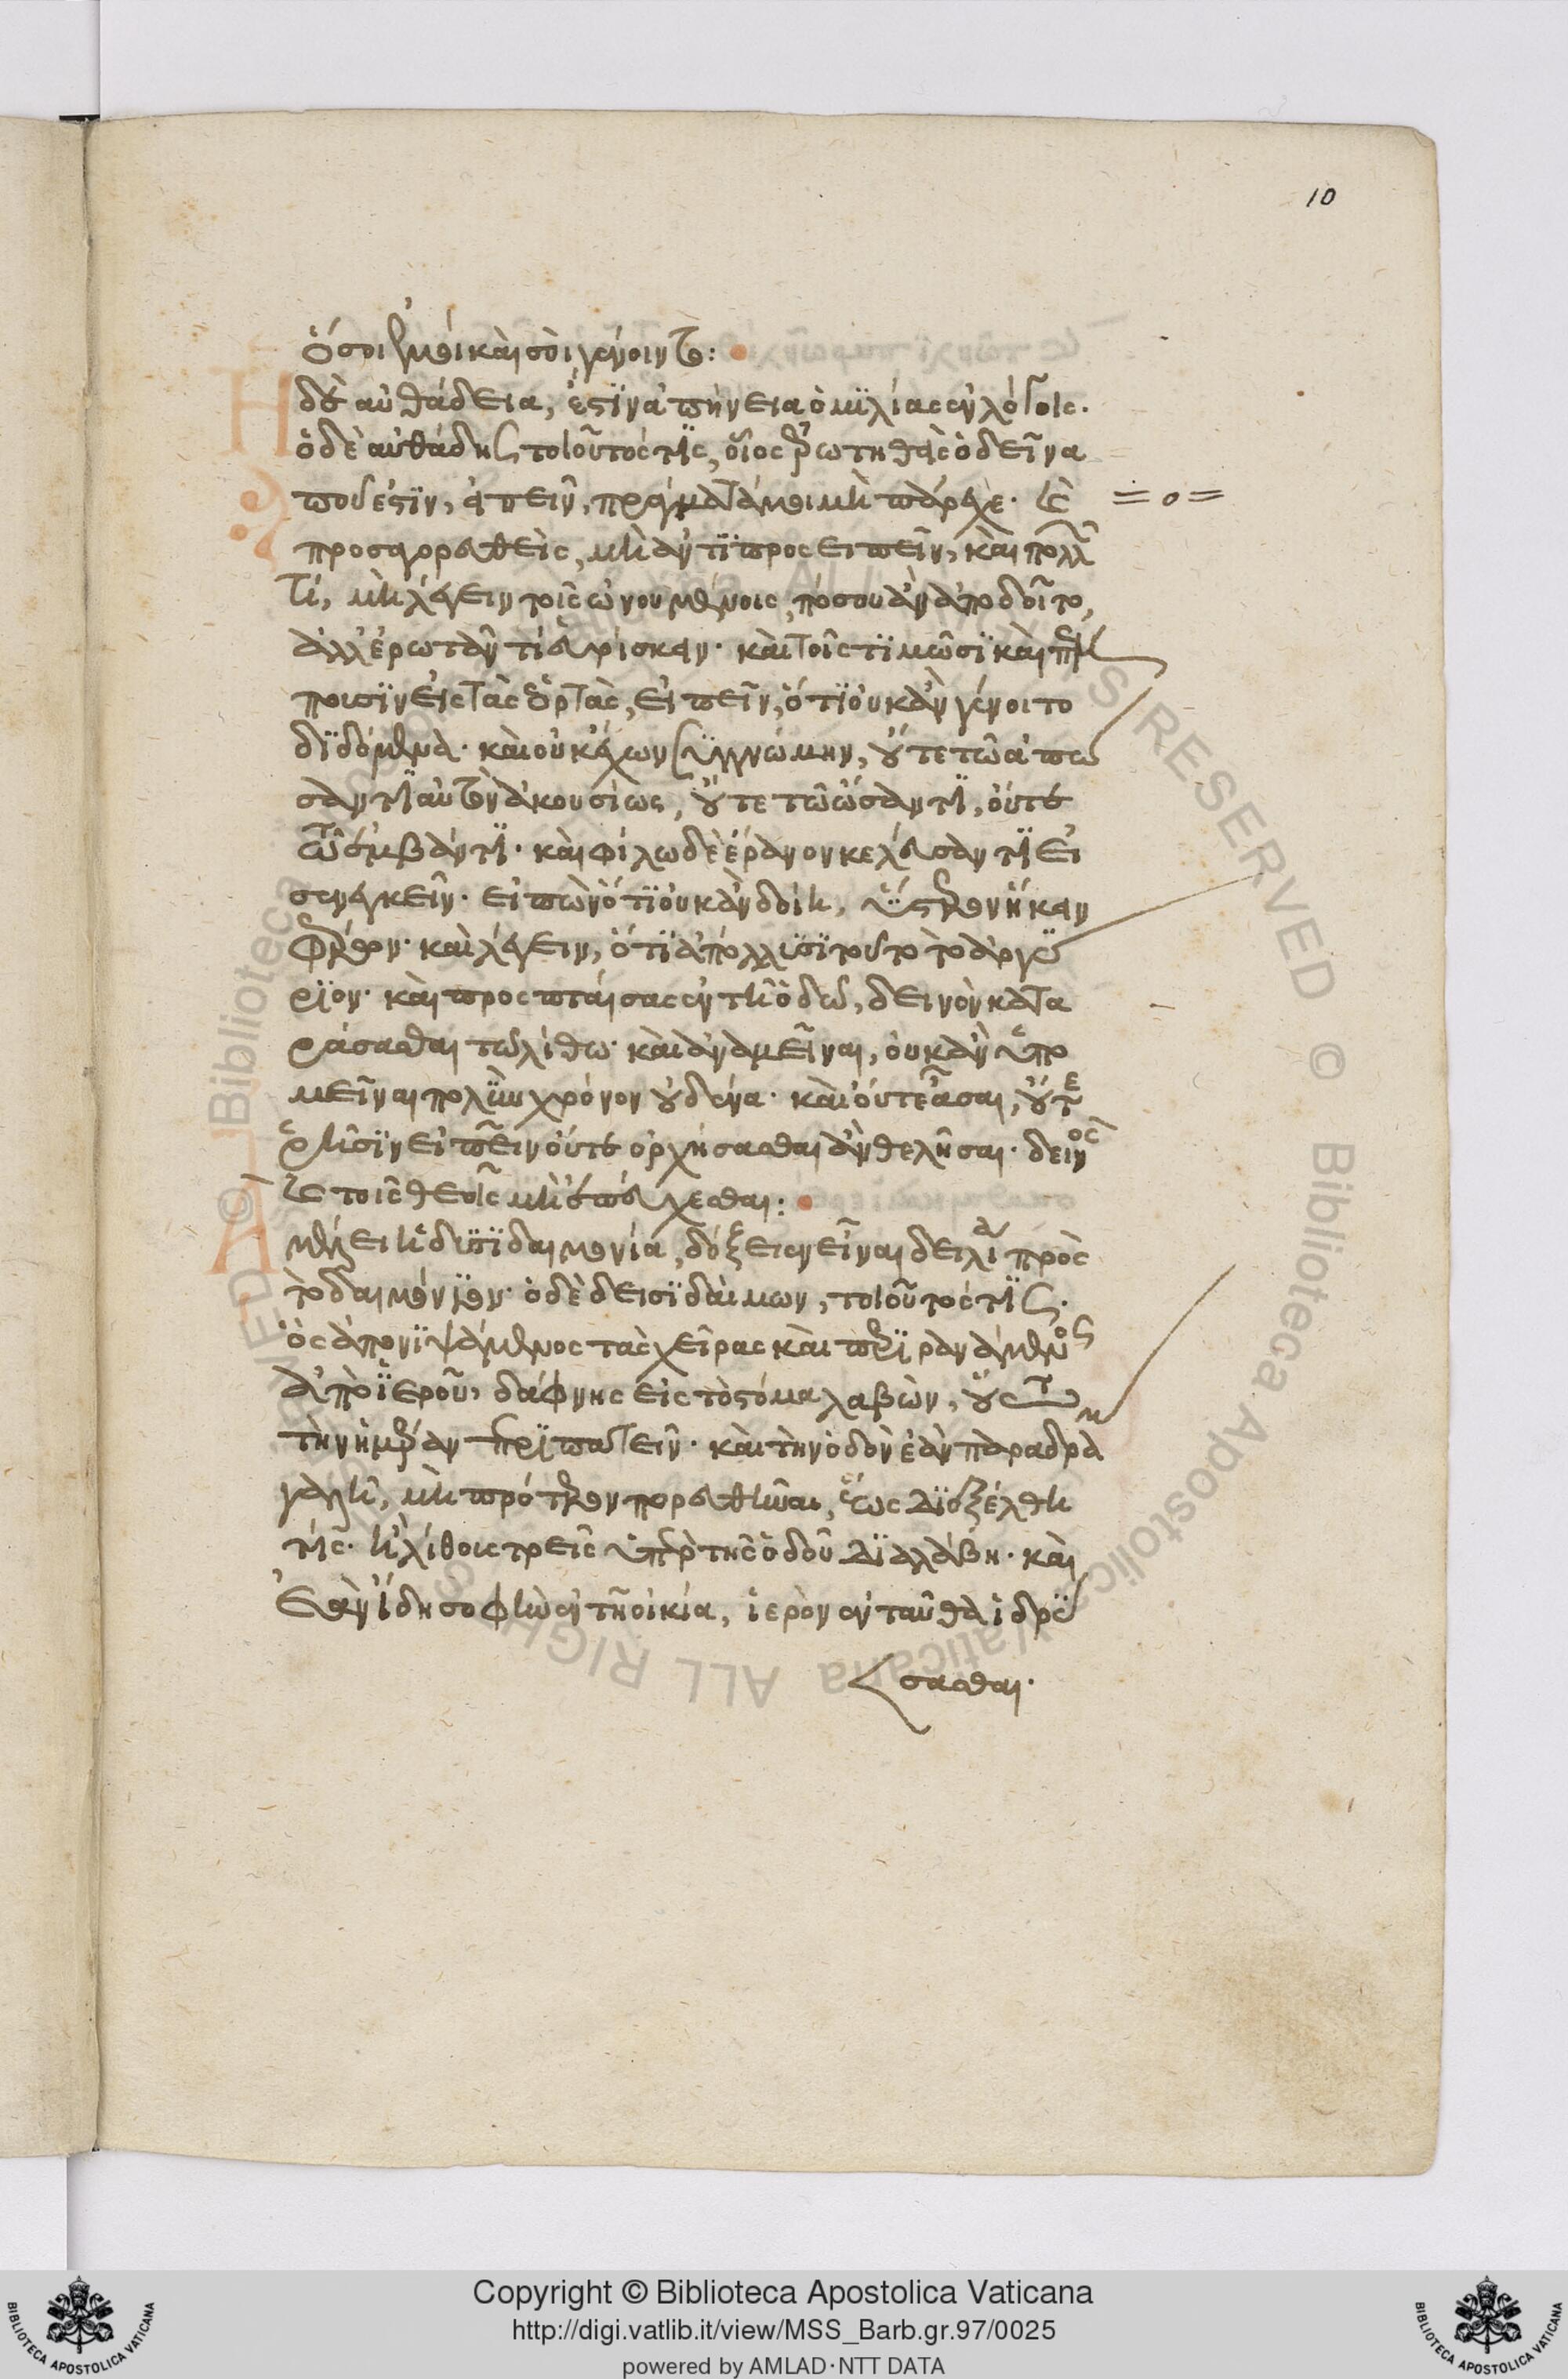 10
ὅσοι ἐμοὶ καὶ σοὶ γένοιντο:
Η δὲ αὐθάδεια, ἐστὶν ἀπήνεια ὁμιλίας ἐν λόγοις.
ὁ δὲ αὐθάδης τοιοῦτός τις, οἷος ἐρωτηθεὶς ὁ δεῖνα
ποῦ ἐστιν, εἰπεῖν, πράγματά μοι μὴ πάρεχε. καὶ = ο =
προσαγορευθεὶς, μὴ ἀντιπροσειπεῖν, καὶ πωλῶν
τί, μὴ λέγειν τοῖς ὠνουμένοις, πόσου ἂν ἀποδοῖτο,
ἀλλ' ἐρωτᾶν τί εὑρίσκει. καὶ τοῖς τιμῶσι καὶ πέμ
πουσιν εἰς τὰς ἑορτὰς, εἰπεῖν, ὅτι οὐκ ἂν γένοιτο
διδόμενα. καὶ οὐκ ἔχων συγγνώμην, οὔτε τῶ ἀπώ
σαντι αὐτὸν ἀκουσίως, οὔτε τῶ ὤσαντι, οὔτε
τῶ ἐμβάντι. καὶ φίλω δὲ ἔρανον κελεύσαντι εἰ
σενεγκεῖν. εἰπὼν ὅτι οὐκ ἂν δοίη, ὕστερον ἥκειν
φέρων. καὶ λέγειν, ὅτι ἀπόλλυσι τοῦτο τὸ ἀργύ
ριον. καὶ προσπταίσας ἐν τῆ ὁδῶ, δεινὸν κατα
ράσασθαι τῶ λίθω. καὶ ἀναμεῖναι, οὐκ ἂν ὑπο
μεῖναι πολὺν χρόνον οὐδένα. καὶ οὔτε ᾆσαι, οὔτε
ῥῆσιν εἰπεῖν οὔτε ὀρχήσασθαι ἂν θελῆσαι. δεινὸς
δὲ τοῖς θεοῖς μὴ ἐπεύχεσθαι:
Α μέλει ἡ δεισιδαιμονία, δόξειεν εἶναι δειλία πρὸς
τὸ δαιμόνιον. ὁ δὲ δεισιδαίμων, τοιοῦτός τις.
ὃς ἀπονιψάμενος τὰς χεῖρας καὶ περιρανάμενος
ἀπὸ ἱεροῦ, δάφνης εἰς τὸ στόμα λαβὼν, οὕτω
τὴν ἡμέραν περιπατεῖν. καὶ τὴν ὁδὸν ἐὰν παραδρά
μη γαλῆ, μὴ πρότερον πορευθῆναι, ἕως διεξέλθη
τίς. ἢ λίθους τρεῖς ὑπὲρ τῆς ὁδοῦ διαλάβη. καὶ
ἐὰν ἴδη ὄφιν ἐν τῆ οἰκία, ἱερὸν ἐνταῦθα ἱδρύ
σασθαι.
© Biblioteca Apostolica Vaticana ALL RIGHTS RESERVED
Copyright © Biblioteca Apostolica Vaticana
http://digi.vatlib.it/view/MSS_Barb.gr.97/0025
powered by AMLAD·NTT DATA
BIBLIOTECA APOSTOLICA VATICANA
BIBLIOTECA APOSTOLICA VATICANA